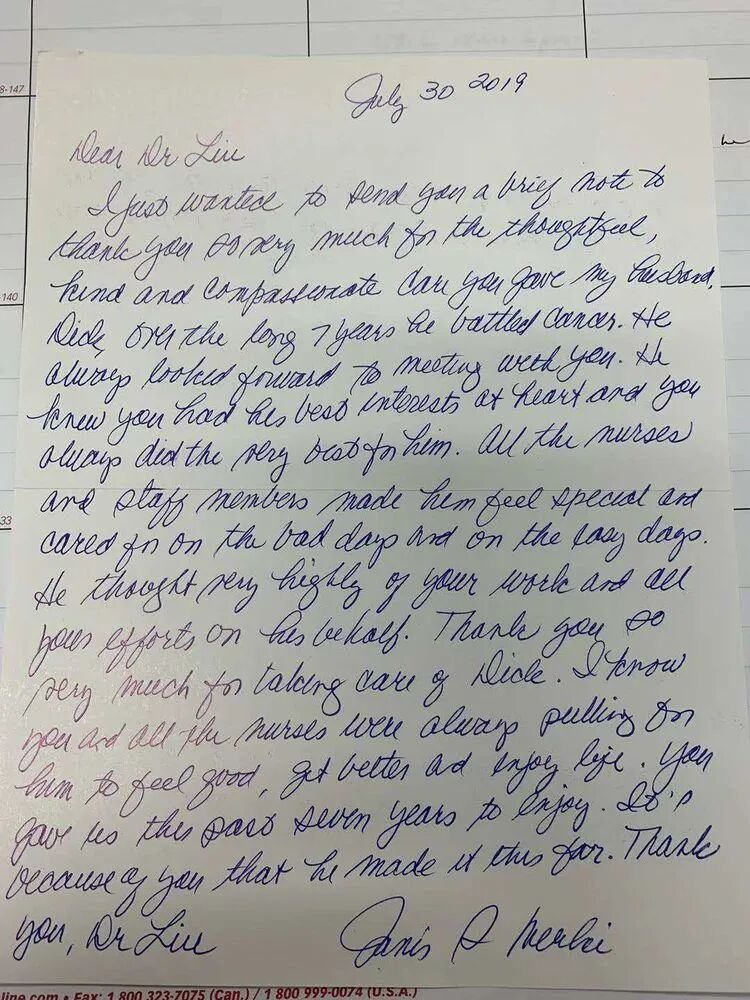 8-147
July 30 2019
Dear Dr Liu
I just wanted to send you a brief note to
thank you so very much for the thoughtful,
-140
kind and compassionate care you gave my husband,
Dick, over the long 7 years he battled cancer. He
always looked forward to meeting with you. He
knew you had his best interests at heart and you
always did the very best for him. All the nurses
and staff members made him feel special and
33
cared for on the bad days and on the easy days.
He thought very highly of your work and all
your efforts on his behalf. Thank you so
very much for taking care of Dick. I know
you and all the nurses were always pulling for
him to feel good, get better and enjoy life. You
gave us this past seven years to enjoy. It's
because of you that he made it this far. Thank
you, Dr Liu
Janis
line.com • Fax: 1 800 323-7075 (Can.) / 1 800 999-0074 (U.S.A.)